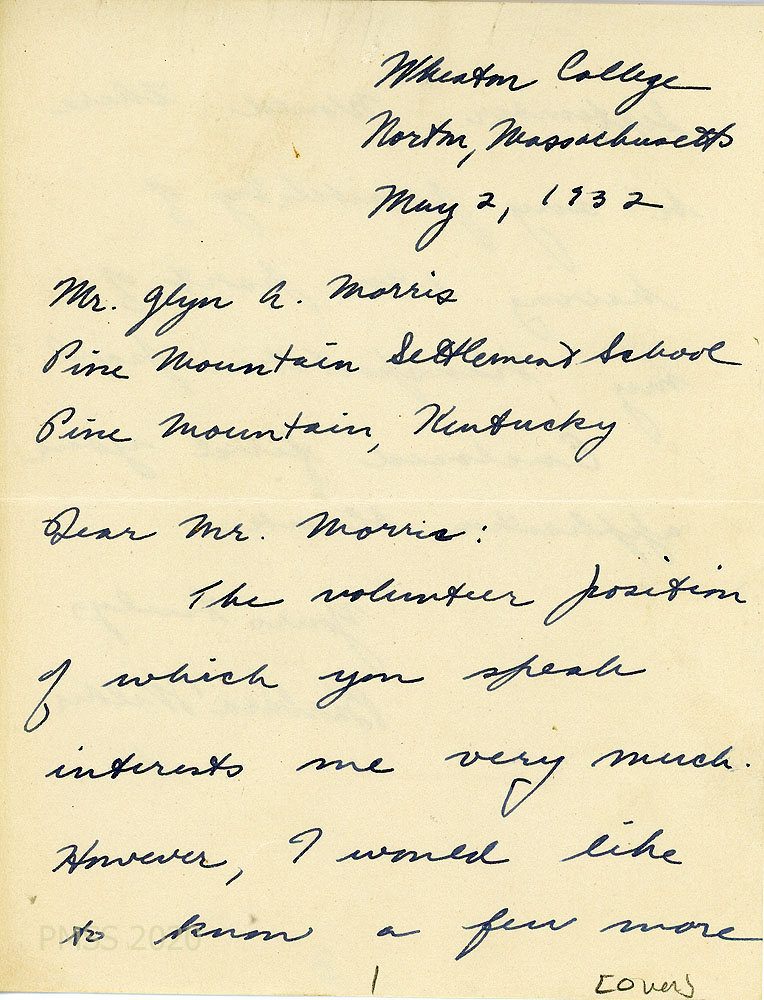 Wheaton College
Norton, Massachusetts
May 2, 1932
Mr. Glyn A. Morris
Pine Mountain Settlement School
Pine Mountain, Kentucky
Dear Mr. Morris:
The volunteer position
of which you speak
interests me very much.
However, I would like
to know a few more
PMSS 2020
1
[over]